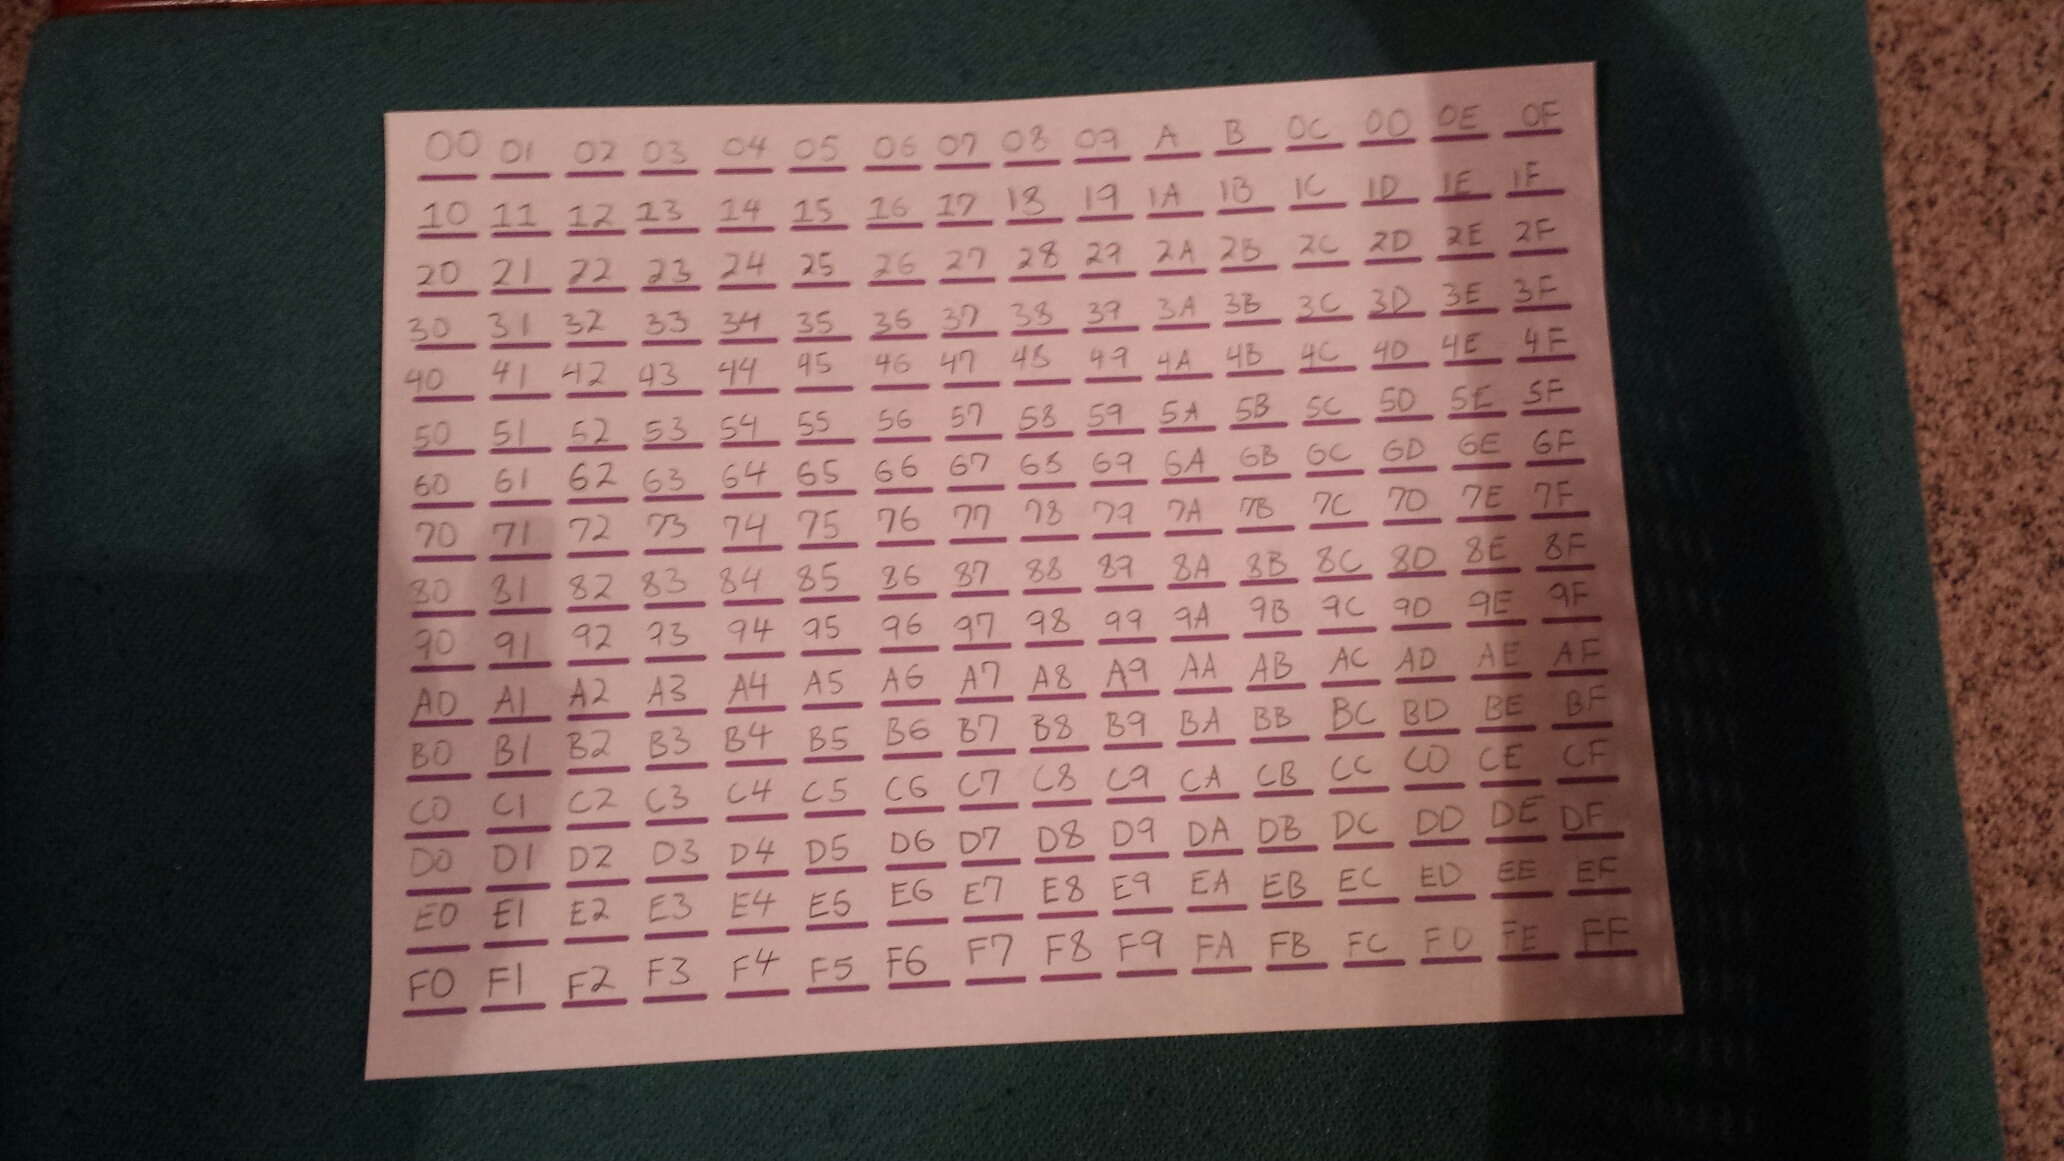 00 01 02 03 04 05 06 07 08 09 A B 0C 0D 0E 0F
10 11 12 13 14 15 16 17 18 19 1A 1B 1C 1D 1E 1F
20 21 22 23 24 25 26 27 28 29 2A 2B 2C 2D 2E 2F
30 31 32 33 34 35 36 37 38 39 3A 3B 3C 3D 3E 3F
40 41 42 43 44 45 46 47 48 49 4A 4B 4C 4D 4E 4F
50 51 52 53 54 55 56 57 58 59 5A 5B 5C 5D 5E 5F
60 61 62 63 64 65 66 67 68 69 6A 6B 6C 6D 6E 6F
70 71 72 73 74 75 76 77 78 79 7A 7B 7C 7D 7E 7F
80 81 82 83 84 85 86 87 88 89 8A 8B 8C 8D 8E 8F
90 91 92 93 94 95 96 97 98 99 9A 9B 9C 9D 9E 9F
A0 A1 A2 A3 A4 A5 A6 A7 A8 A9 AA AB AC AD AE AF
B0 B1 B2 B3 B4 B5 B6 B7 B8 B9 BA BB BC BD BE BF
C0 C1 C2 C3 C4 C5 C6 C7 C8 C9 CA CB CC CD CE CF
D0 D1 D2 D3 D4 D5 D6 D7 D8 D9 DA DB DC DD DE DF
E0 E1 E2 E3 E4 E5 E6 E7 E8 E9 EA EB EC ED EE EF
F0 F1 F2 F3 F4 F5 F6 F7 F8 F9 FA FB FC FD FE FF